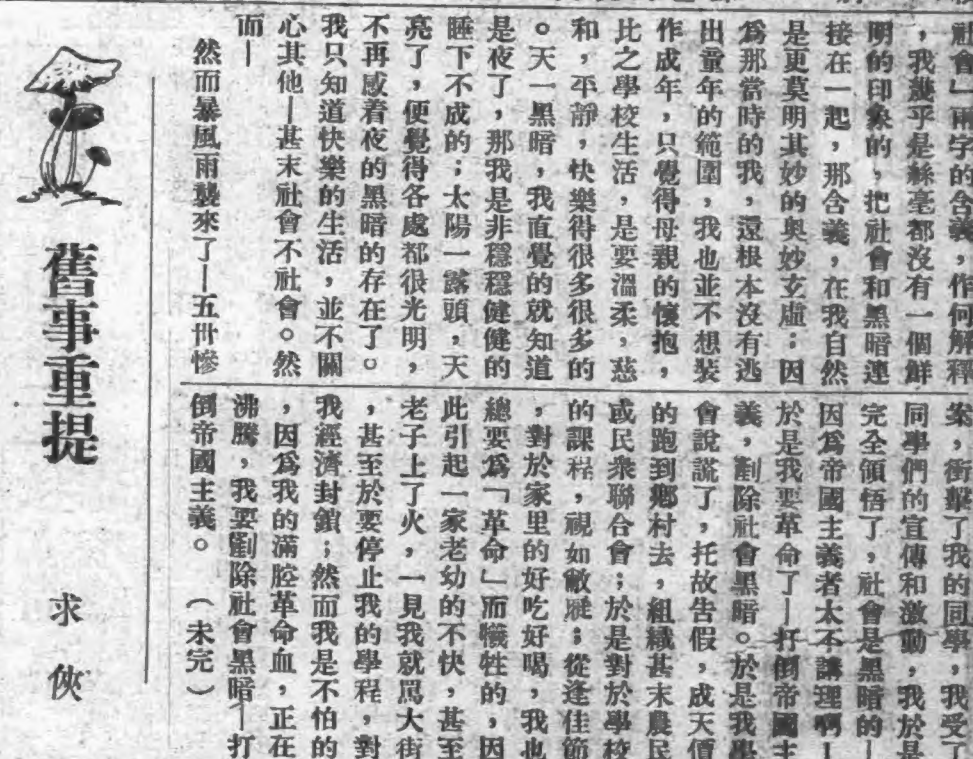 社會」兩字的含義,作何解釋
,我幾乎是絲毫都沒有一個鮮
明的印象的,把社會和黑暗連
接在一起,那含義,在我自然
是更莫明其妙的奥妙玄虛;因
爲那當時的我,還根本沒有逃
出童年的範圍,我也並不想裝
作成年,只覺得母親的懷抱,
比之學校生活,是要溫柔,慈
和,平靜,快樂得很多很多的
。天一黑暗,我直覺的就知道
是夜了,那我是非穩穩健健的
睡下不成的;太陽一露頭,天
亮了,便覺得各處都很光明,
不再感着夜的黑暗的存在了。
我只知道快樂的生活,並不關
心其他—甚末社會不社會。然
而—
然而暴風雨襲來了—五卅慘
案,衝擊了我的同學,我受了
同學們的宣傳和激動,我於是
完全領悟了,社會是黑暗的—
因爲帝國主義者太不講理啊—
於是我要革命了—打倒帝國主
義,剷除社會黑暗。於是我學
會說謊了,托故告假,成天價
的跑到鄉村去,組織甚末農民
或民衆聯合會;於是對於學校
的課程,視如敝屣;從逢佳節
,對於家里的好吃好喝,我也
總要爲「革命」而犧牲的,因
此引起一家老幼的不快,甚至
老子上了火,一見我就罵大街
,甚至於要停止我的學程,對
我經濟封鎖;然而我是不怕的
,因爲我的滿腔革命血,正在
沸騰,我要剷除社會黑暗—打
倒帝國主義。(未完)
舊事重提
求俠